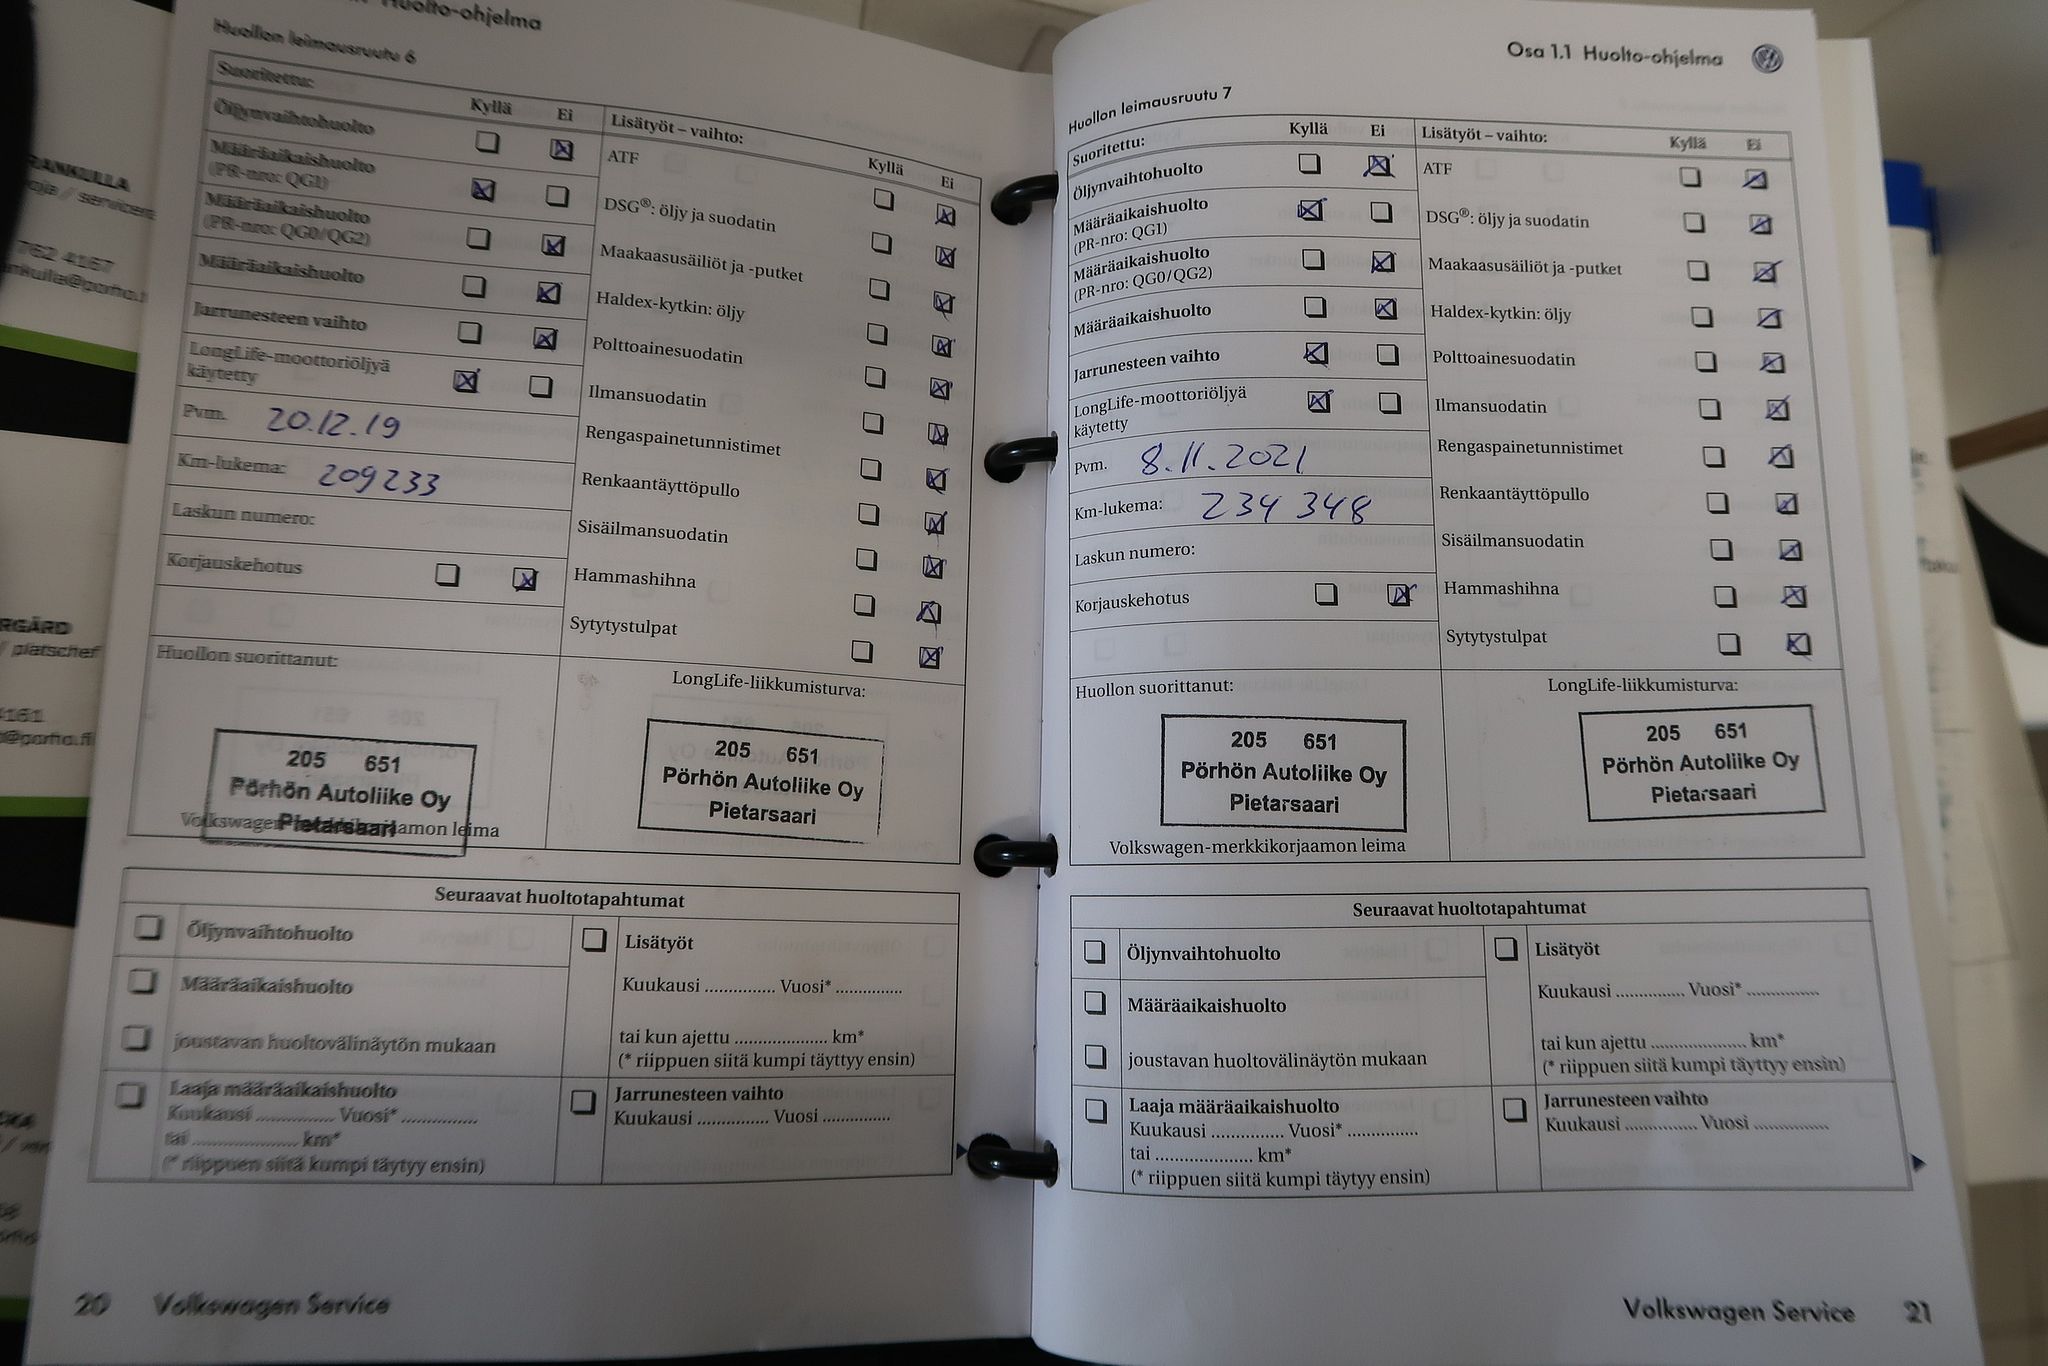 Huolto-ohjelma
Huollon leimausruutu 6
Suoritettu: Kyllä Ei
Öljynvaihtohuolto
Määräaikaishuolto
(PR-nro: QG1)
Määräaikaishuolto
(PR-nro: QG0/QG2)
Määräaikaishuolto
Jarrunesteen vaihto
LongLife-moottoriöljyä
käytetty
Pvm. 20.12.19
Km-lukema: 209233
Laskun numero:
Korjauskehotus
Lisätyöt – vaihto: Kyllä Ei
ATF
DSG®: öljy ja suodatin
Maakaasusäiliöt ja -putket
Haldex-kytkin: öljy
Polttoainesuodatin
Ilmansuodatin
Rengaspainetunnistimet
Renkaantäyttöpullo
Sisäilmansuodatin
Hammashihna
Sytytystulpat
Huollon suorittanut:
205 651
Pörhön Autoliike Oy
Pietarsaari
Volkswagen-merkkikorjaamon leima
LongLife-liikkumisturva:
205 651
Pörhön Autoliike Oy
Pietarsaari
Seuraavat huoltotapahtumat
Öljynvaihtohuolto
Määräaikaishuolto
joustavan huoltovälinäytön mukaan
Laaja määräaikaishuolto
Kuukausi .............. Vuosi* ..............
tai .................... km*
(* riippuen siitä kumpi täytyy ensin)
Lisätyöt
Kuukausi .............. Vuosi* .............
tai kun ajettu .................... km*
(* riippuen siitä kumpi täyttyy ensin)
Jarrunesteen vaihto
Kuukausi .............. Vuosi .............
20 Volkswagen Service
Osa 1.1 Huolto-ohjelma
Huollon leimausruutu 7
Suoritettu: Kyllä Ei
Öljynvaihtohuolto
Määräaikaishuolto
(PR-nro: QG1)
Määräaikaishuolto
(PR-nro: QG0/QG2)
Määräaikaishuolto
Jarrunesteen vaihto
LongLife-moottoriöljyä
käytetty
Pvm. 8.11.2021
Km-lukema: 234 348
Laskun numero:
Korjauskehotus
Lisätyöt – vaihto: Kyllä Ei
ATF
DSG®: öljy ja suodatin
Maakaasusäiliöt ja -putket
Haldex-kytkin: öljy
Polttoainesuodatin
Ilmansuodatin
Rengaspainetunnistimet
Renkaantäyttöpullo
Sisäilmansuodatin
Hammashihna
Sytytystulpat
Huollon suorittanut:
205 651
Pörhön Autoliike Oy
Pietarsaari
Volkswagen-merkkikorjaamon leima
LongLife-liikkumisturva:
205 651
Pörhön Autoliike Oy
Pietarsaari
Seuraavat huoltotapahtumat
Öljynvaihtohuolto
Määräaikaishuolto
joustavan huoltovälinäytön mukaan
Laaja määräaikaishuolto
Kuukausi .............. Vuosi* ..............
tai .................... km*
(* riippuen siitä kumpi täytyy ensin)
Lisätyöt
Kuukausi .............. Vuosi* ..............
tai kun ajettu .................... km*
(* riippuen siitä kumpi täyttyy ensin)
Jarrunesteen vaihto
Kuukausi .............. Vuosi ..............
Volkswagen Service 21
762 4167